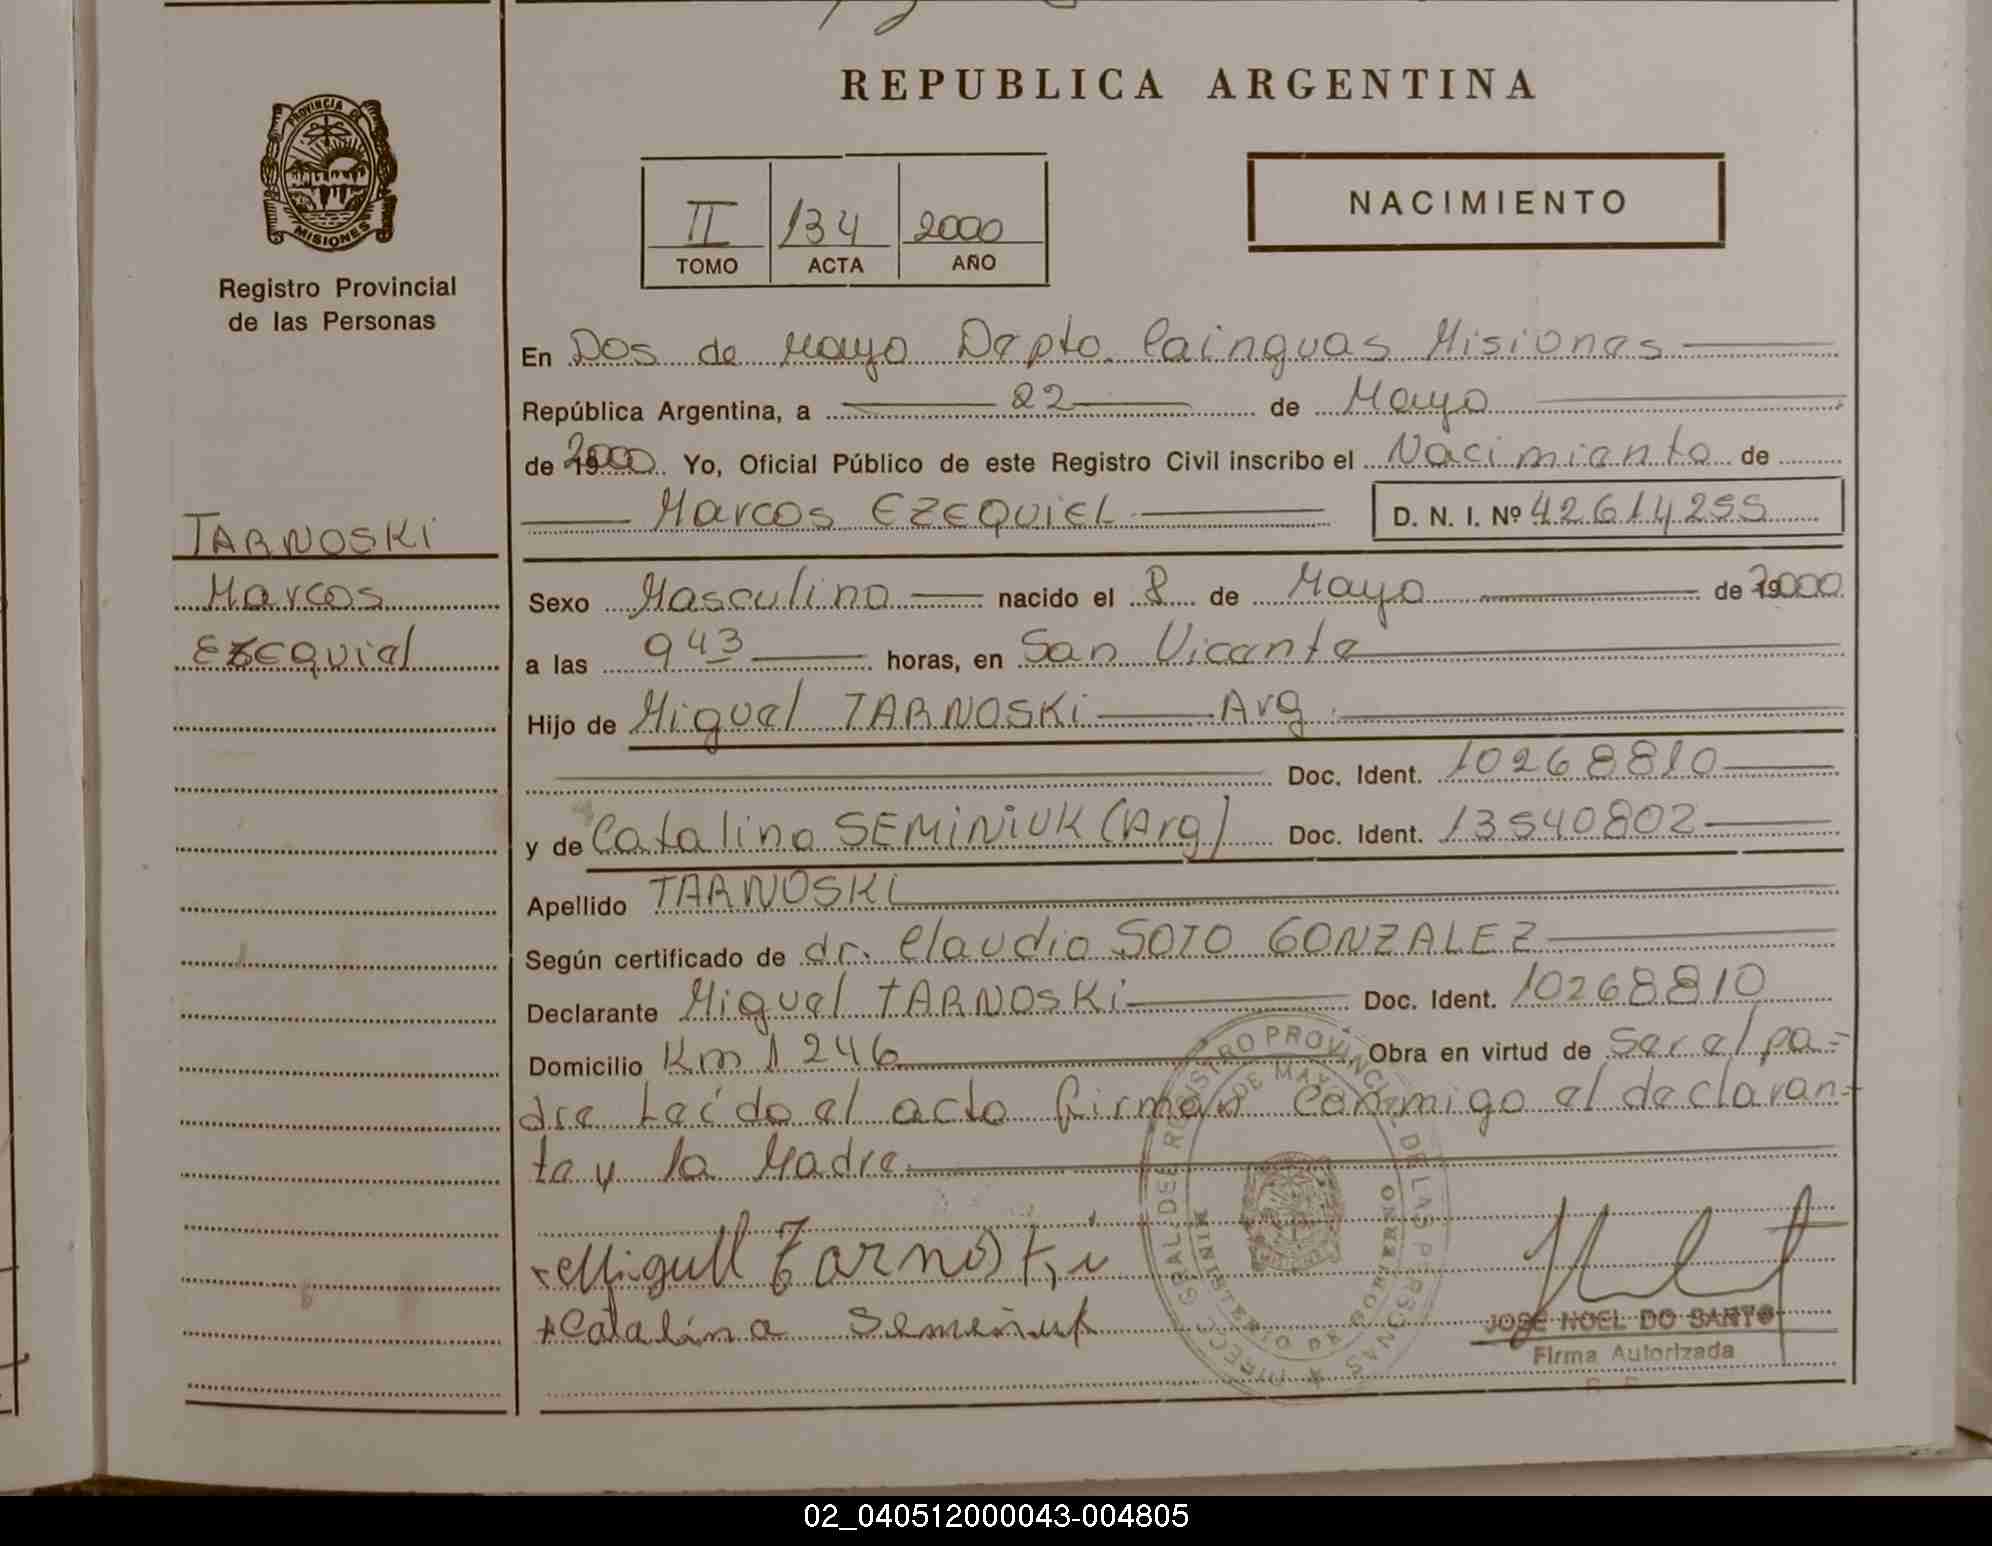 REPUBLICA ARGENTINA
PROVINCIA DE
MISIONES
Registro Provincial
de las Personas
II 134 2000
TOMO ACTA AÑO
NACIMIENTO
En Dos de Mayo Depto. Cainguas Misiones
República Argentina, a 22 de Mayo
de 2000 Yo, Oficial Público de este Registro Civil inscribo el Nacimiento de
Marcos EZEQUIEL D. N. I. Nº 42614255
TARNOSKI
Marcos
Ezequiel
Sexo Masculino nacido el 8 de Mayo de 2000
a las 9 43 horas, en San Vicente
Hijo de Miguel TARNOSKI Arg.
Doc. Ident. 10268810
y de Catalina SEMINIUK (Arg) Doc. Ident. 13540802
Apellido TARNOSKI
Según certificado de dr. Claudio SOTO GONZALEZ
Declarante Miguel TARNOSKI Doc. Ident. 10268810
Domicilio Km 1246 Obra en virtud de Ser el pa-
dre Leído el acto firman conmigo el declaran-
te y la Madre
Miguel Tarnoski
Catalina Semeniuk
DIRECC. GRAL DEL REGISTRO PROVINCIAL DE LAS PERSONAS
DE MAYO
MINISTERIO DE GOBIERNO
JOSE NOEL DO SANTO
Firma Autorizada
02_040512000043-004805